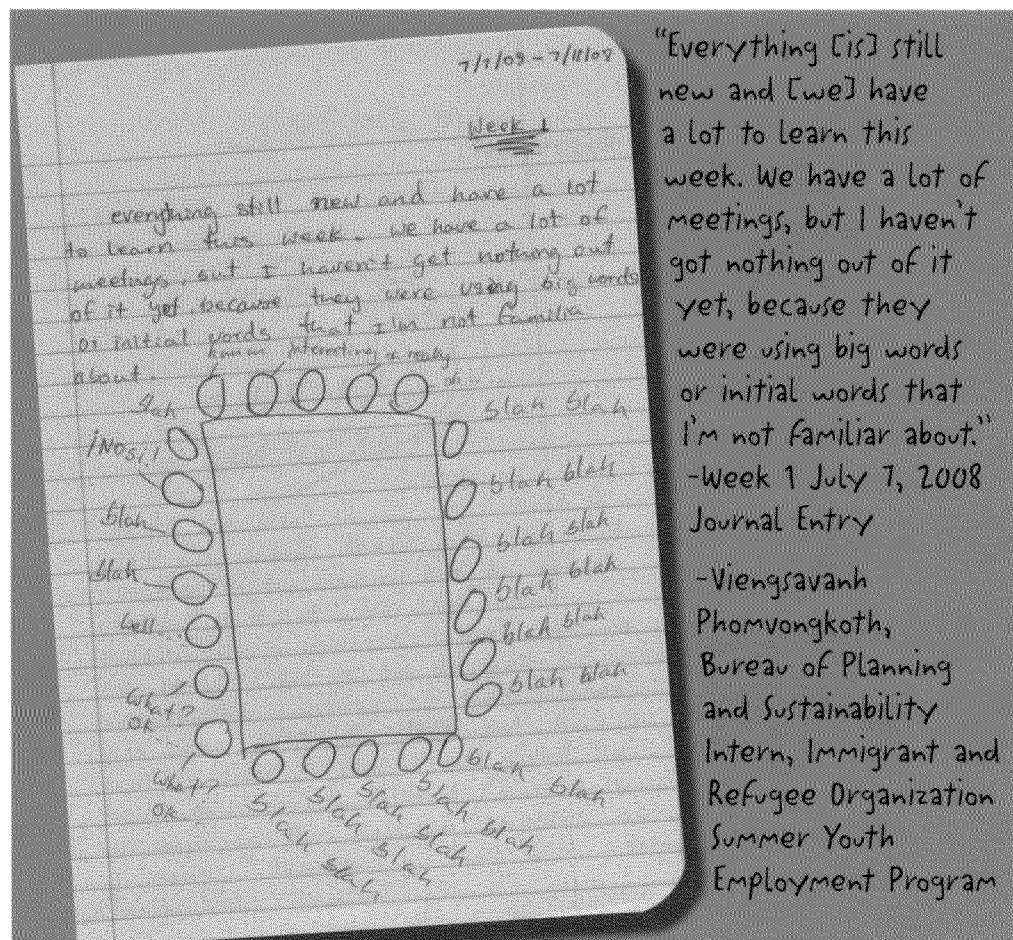 7/7/08 - 7/11/08
Week 1
everything still new and have a lot
to learn this week. We have a lot of
meetings, but I haven't get nothing out
of it yet because they were using big words
or initial words that I'm not familia
about.
interesting
oh...
blah
blah blah
blah blah
blah
blah blah
blah
blah blah
well...
blah blah
What?
blah blah
OK
What?
OK
blah
blah
blah blah
blah blah
blah blah
blah blah
"Everything [is] still
new and [we] have
a lot to learn this
week. We have a lot of
meetings, but I haven't
got nothing out of it
yet, because they
were using big words
or initial words that
I'm not familiar about."
-Week 1 July 7, 2008
Journal Entry
-Viengsavanh
Phomvongkoth,
Bureau of Planning
and Sustainability
Intern, Immigrant and
Refugee Organization
Summer Youth
Employment Program